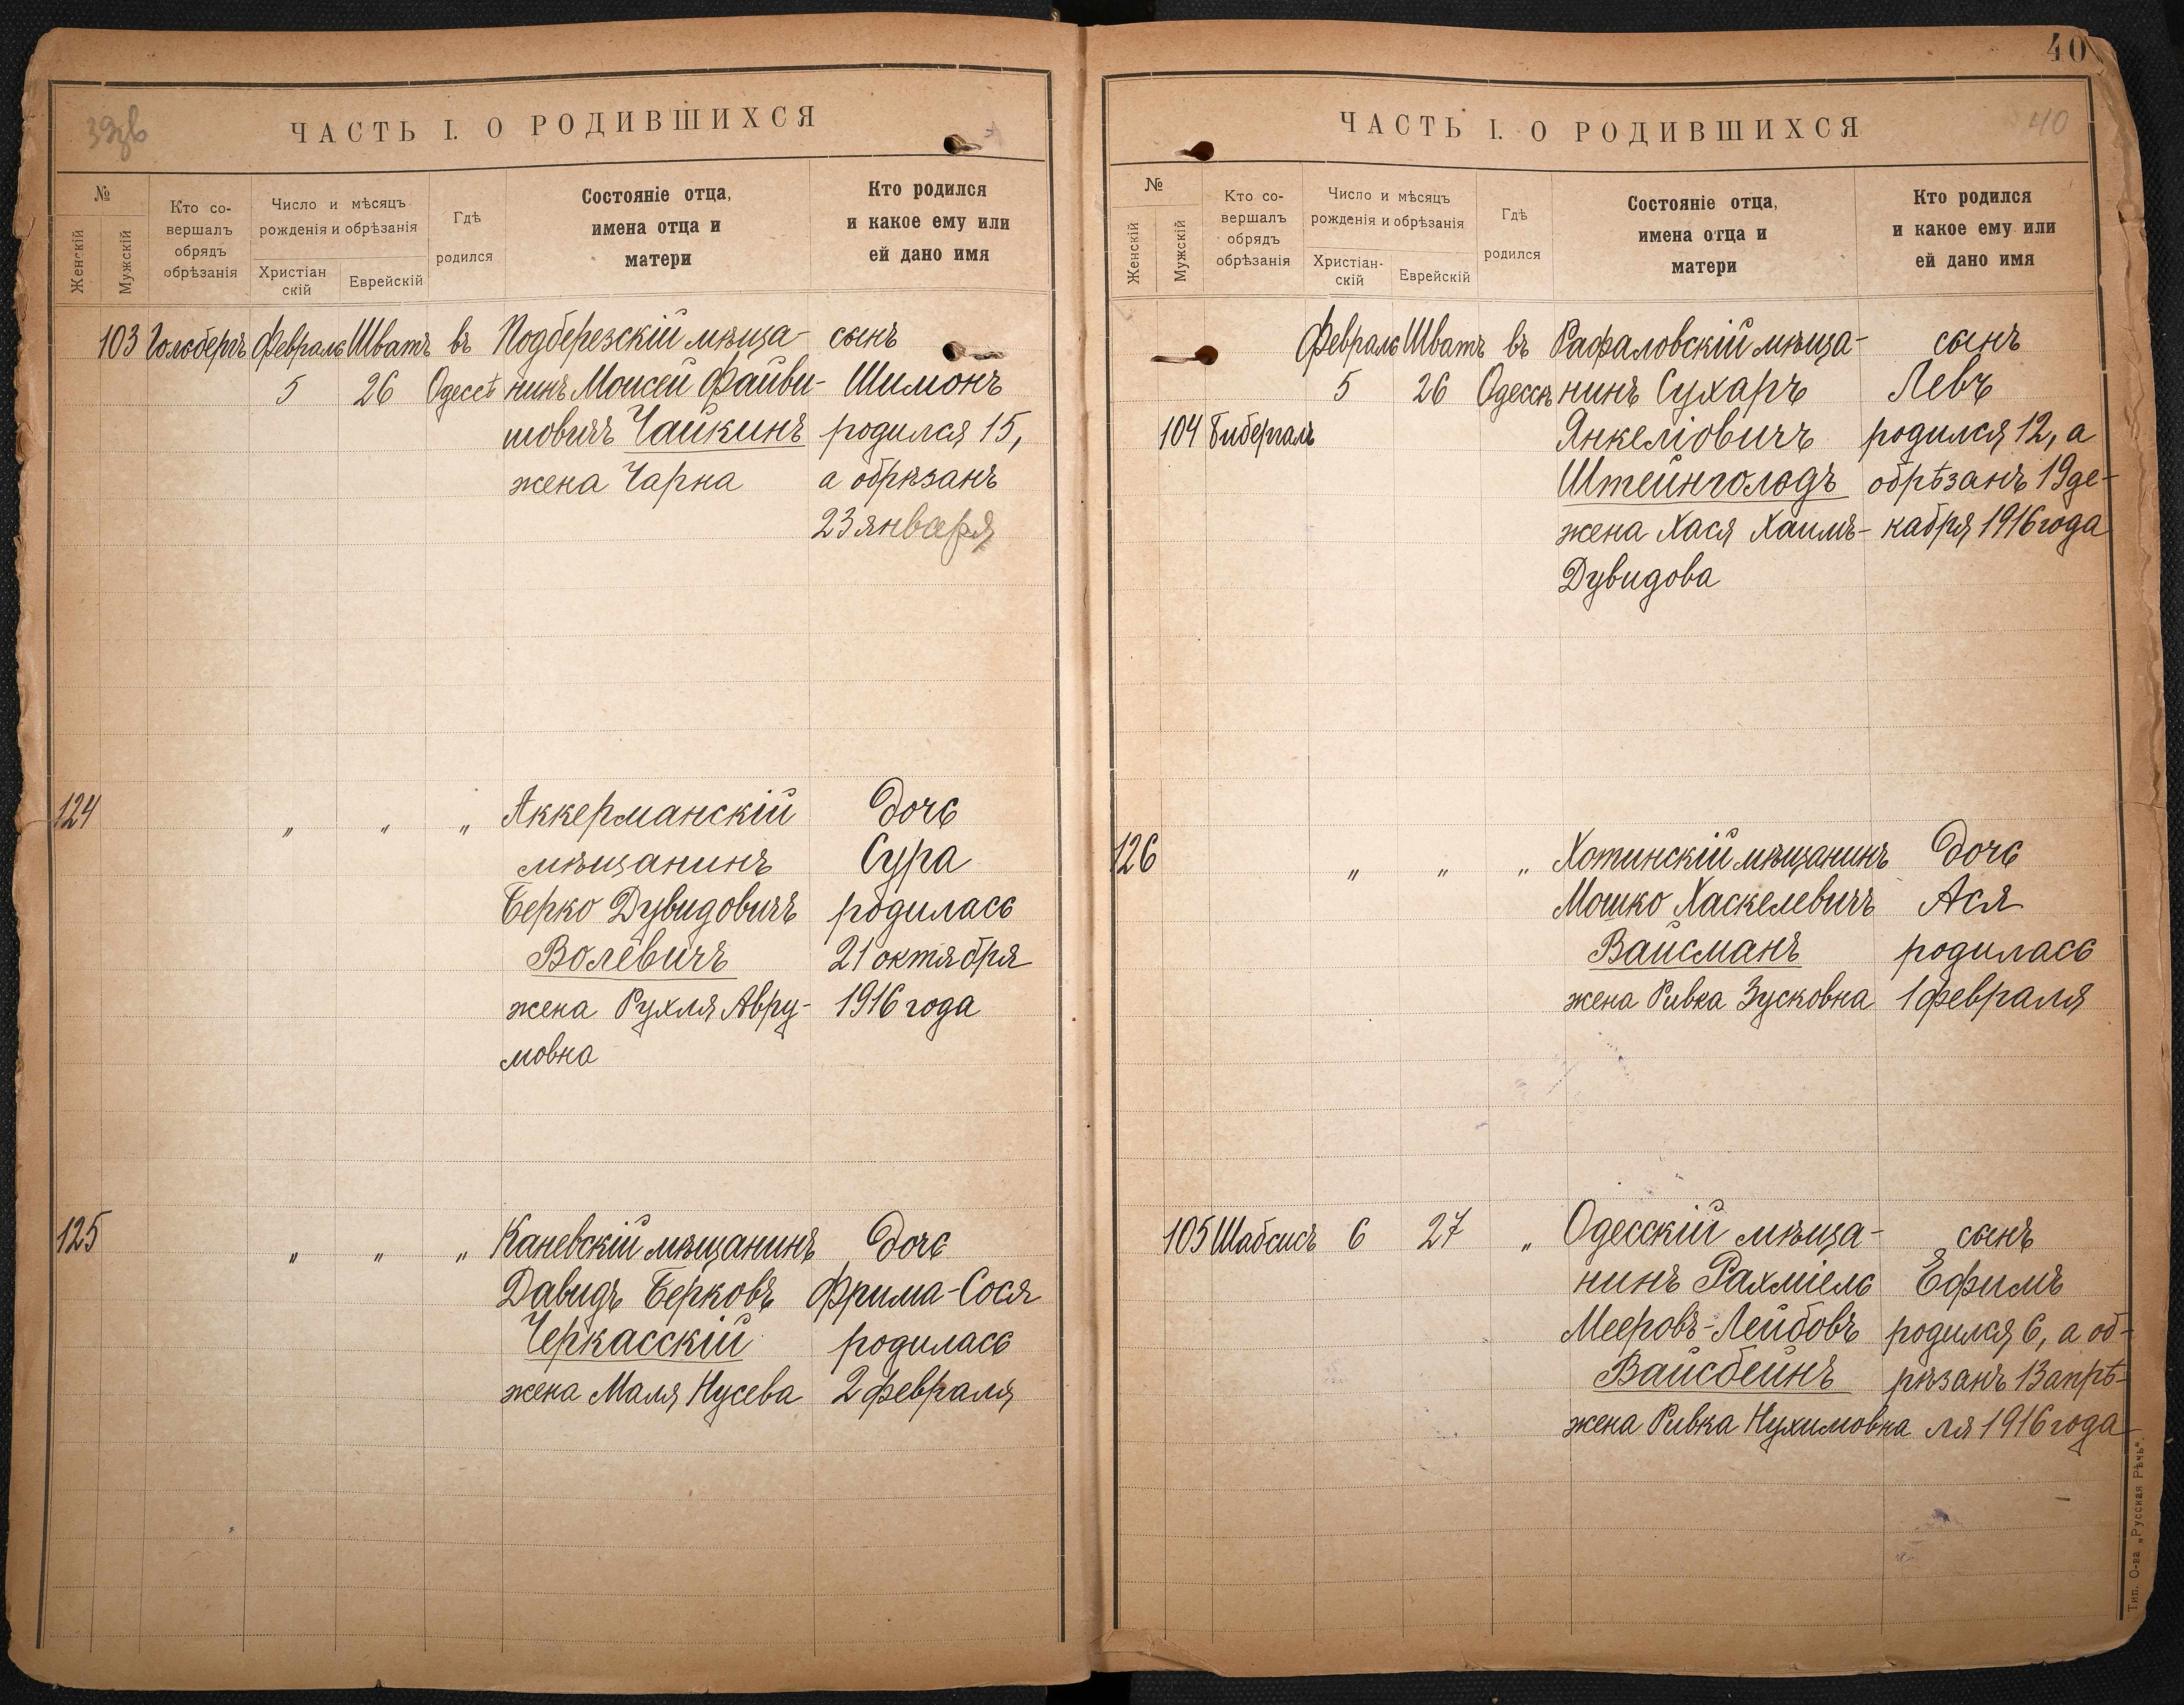 ЧАСТЬ I. О РОДИВШИХСЯ
№
Женскій
Мужскій
Кто со-
вершалъ
обрядъ
обрѣзанія
Число и мѣсяцъ
рожденія и обрѣзанія
Христіан
скій
Еврейскій
Гдѣ
родился
Состояніе отца,
имена отца и
матери
Кто родился
и какое ему или
ей дано имя
103 Февраль Шватъ въ Подберезскій мѣща- сынъ
5 26 Одессѣ нинъ Моисей Файви- Шимонъ
шовичъ Чайкинъ родился 15,
жена Чарна а обрѣзанъ
23 января
124 " " " Аккерманскій дочь
мѣщанинъ Сура
Берко Дувидовичъ родилась
Волевичъ 21 октября
жена Рухля Авру- 1916 года
мовна
125 " " " Каневскій мѣщанинъ дочь
Давидъ Берковъ Фрима-Сося
Черкасскій родилась
жена Маля Нусева 2 февраля
40
ЧАСТЬ I. О РОДИВШИХСЯ
40
№
Женскій
Мужскій
Кто со-
вершалъ
обрядъ
обрѣзанія
Число и мѣсяцъ
рожденія и обрѣзанія
Христіан-
скій
Еврейскій
Гдѣ
родился
Состояніе отца,
имена отца и
матери
Кто родился
и какое ему или
ей дано имя
Февраль Шватъ въ Рафаловскій мѣща- сынъ
5 26 Одессѣ нинъ Сухаръ Левъ
104 Бибергалъ Янкеліовичъ родился 12, а
Штейнгольдъ обрѣзанъ 19 де-
жена Хася Хаимъ- кабря 1916 года
Дувидова
126 " " " Хотинскій мѣщанинъ дочь
Мошко Хаскелевичъ Ася
Вайсманъ родилась
жена Ривка Зусковна 1 февраля
105 Шабсисъ 6 27 " Одесскій мѣща- сынъ
нинъ Рахміель Ефимъ
Мееровъ-Лейбовъ родился 6, а об-
Вайсбейнъ рѣзанъ 13 апрѣ-
жена Ривка Нухимовна ля 1916 года
Тип. О-ва „Русская Рѣчь".